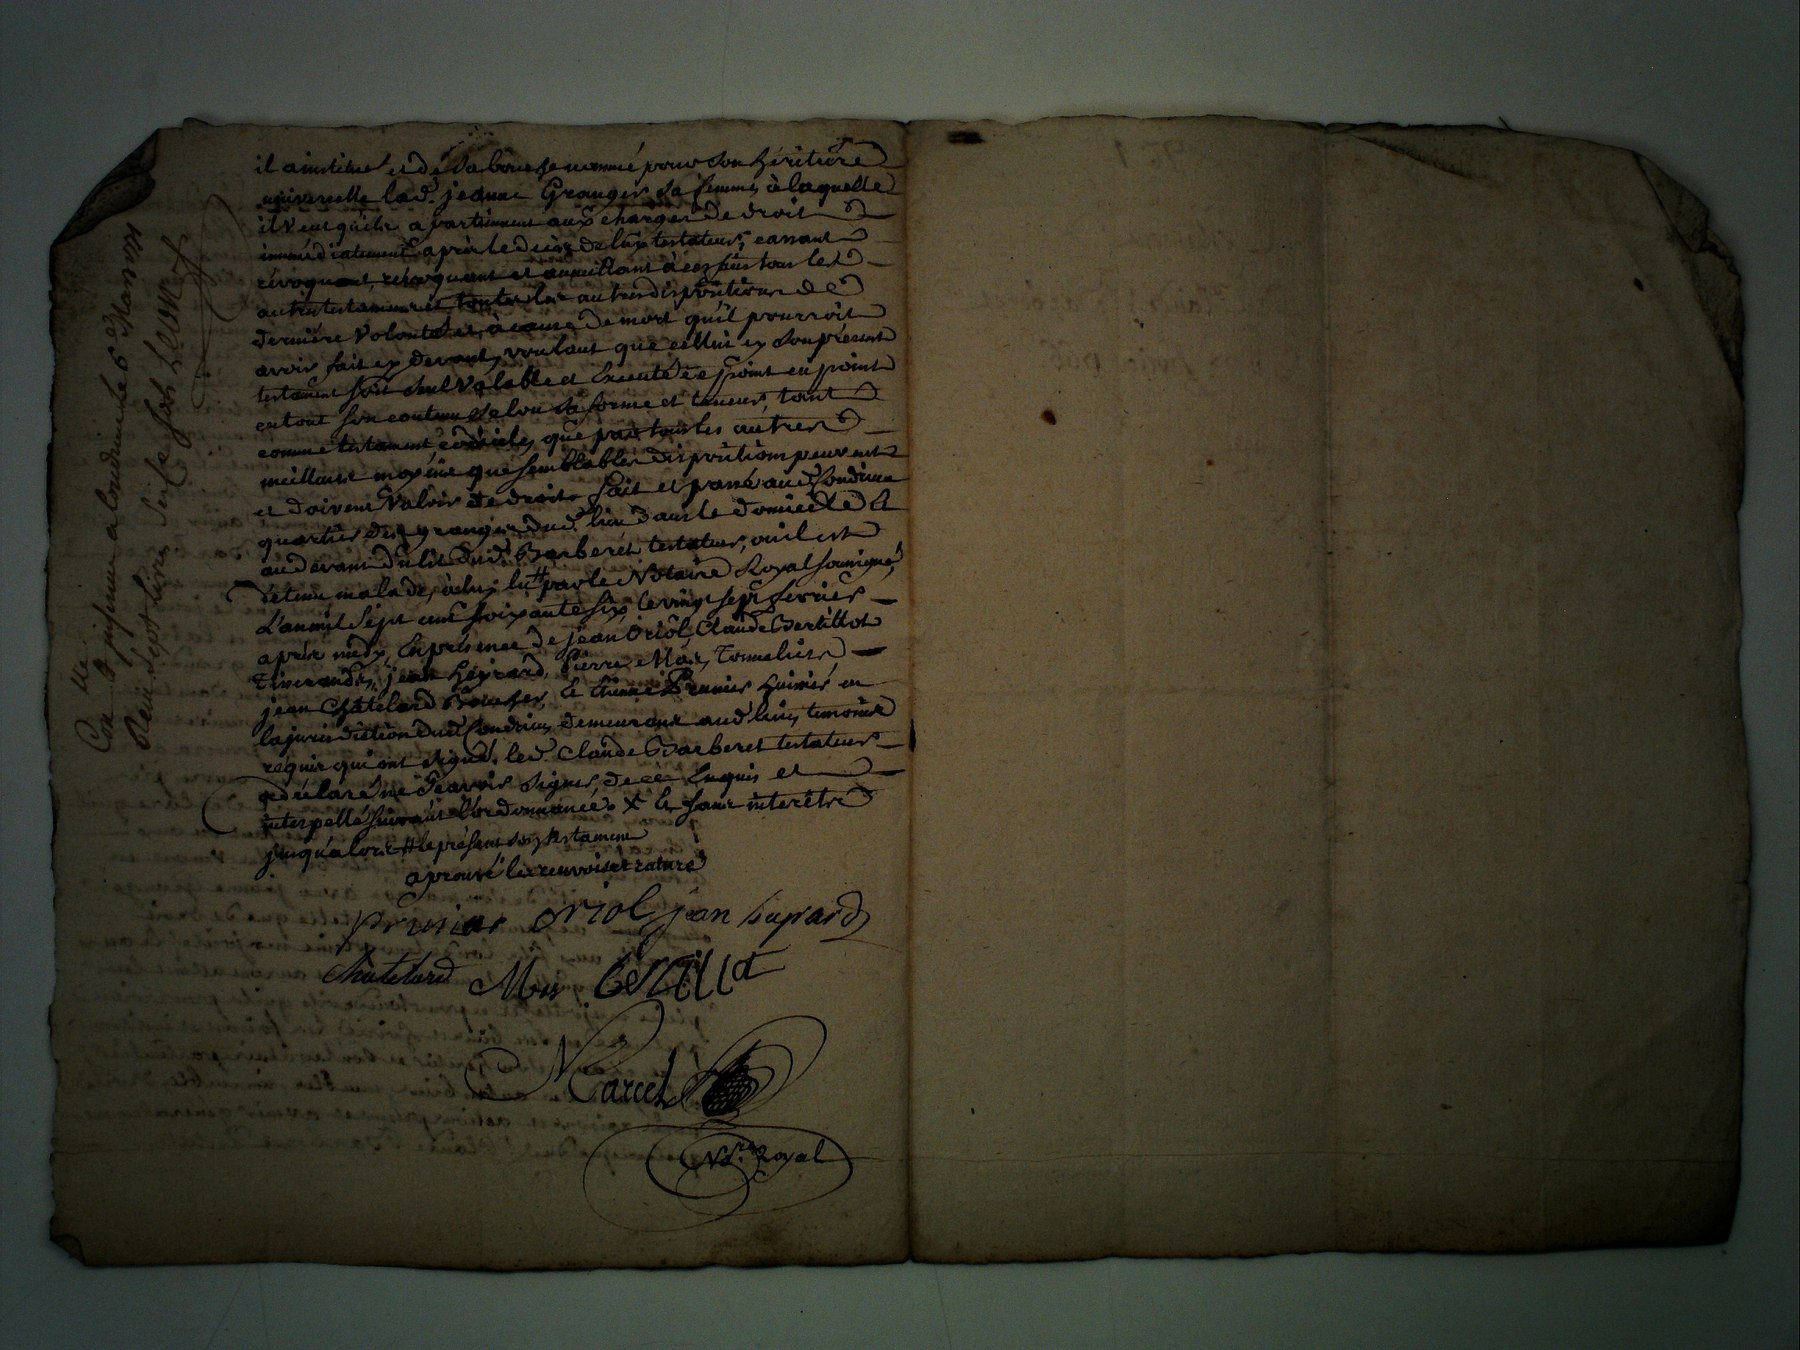 il a institué et de sa bouche nommé pour son héritière
universelle lad. jeanne Granger sa femme à laquelle
il veut qu'elle apartienne aux charges de droit
immédiatement après le decez de luy testateur, cassant
révoquant, et annullant à ces fins tous les
autres testaments toutes les autres dispositions de
dernière volonté et à cause de mort qu'il pourroit
avoir fait cy devant, voulant que cellui cy son présent
testament soit seul valable et executé de point en point
en tout son contenu selon sa forme et teneur, tant
comme testament codicile, que par tous les autres
meilleurs moyens que semblables dispositions peuvent
et doivent valoir de droit. fait et passé aud. Condrieu
quartier des granges dud. lieu dans le domicile &
au devant du lit dud. Barberet testateur, où il est
détenu malade, à luy lu # par le Notaire Royal soussigné,
L'an mil sept cent soixante six, le vingt sept février
après midy, En présence de jean Oriol, Claude Bertillot
Tisserands, jean Heyrard, Pierre Mas, Tonneliers
jean Châtelard Boucher, & Prunier huissier en
la jurisdiction dud. Condrieu, demeurant aud. lieu, temoins
requis qui ont signé. led. Claude Barberet testateur
a déclaré ne sçavoir signer, de ce Enquis et
interpellé suivant l'ordonnance. x & sans interêts
jusqu'alors # le présent son testament
aprouvé les renvois et rature
Prunier oriol jean heyrard
Chatelard Mas bertillot
Marcel
No.re Royal
Con.lle & insinué a Condrieu le 6e Mars 1766
Reçu sept livres